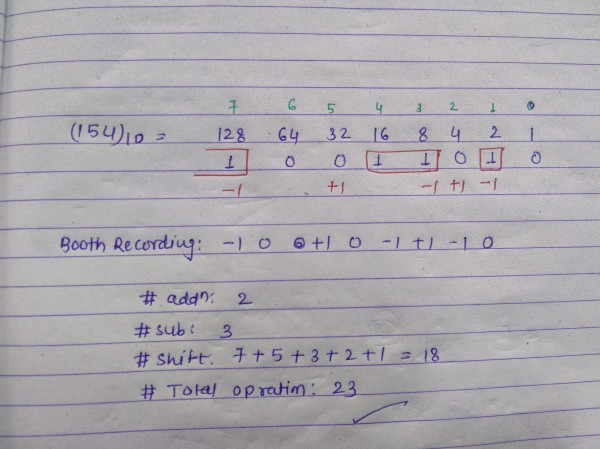 7 6 5 4 3 2 1 0
(154)10 = 128 64 32 16 8 4 2 1
1 0 0 1 1 0 1 0
-1 +1 -1 +1 -1
Booth Recording: -1 0 0 +1 0 -1 +1 -1 0
# addn: 2
# sub: 3
# shift. 7+5+3+2+1 = 18
# Total opratim: 23